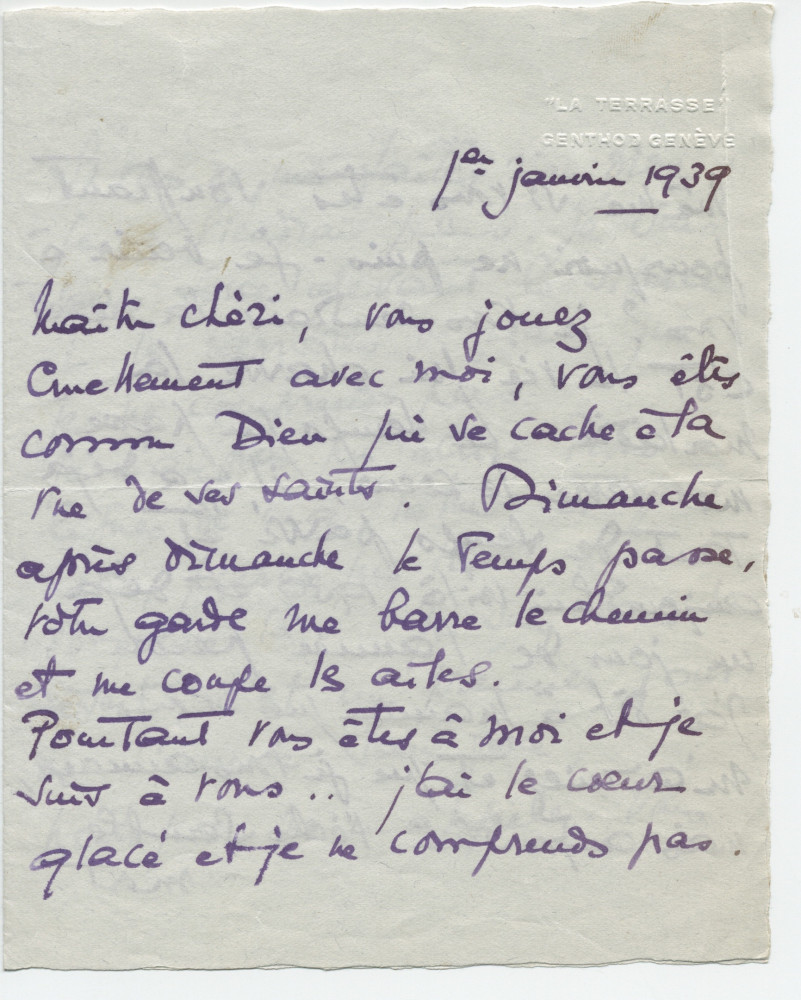 "LA TERRASSE"
GENTHOD GENÈVE
1er janvier 1939
Maître chéri, vous jouez
cruellement avec moi, vous êtes
comme Dieu qui se cache à la
vue de ses saints. Dimanche
après dimanche le temps passe,
votre garde me barre le chemin
et me coupe les ailes.
Pourtant vous êtes à moi et je
suis à vous .. j'ai le coeur
glacé et je ne comprends pas.